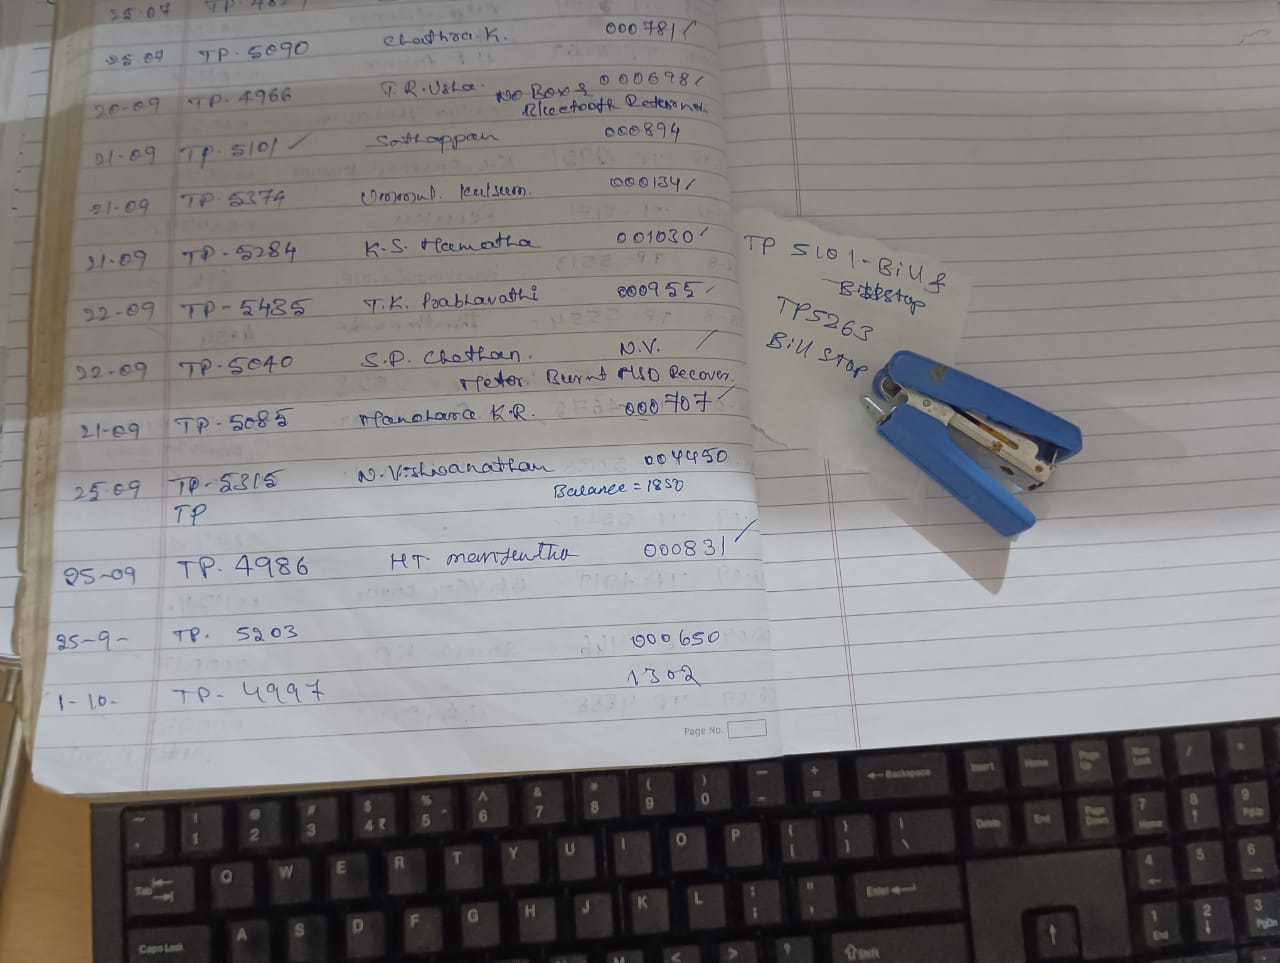 25.07 TP.
25.07 TP.5090 Chathra.K. 000781/
20-09 TP.4966 T.R.Usha. No Box & 000698/
Bluetooth Returned
21.09 TP.5101 / Sathappan 000894
21-09 TP.5374 Ummul. Kulsum. 000134/
21.09 TP-5284 K.S. Hamatha 001030/
22-09 TP-5485 T.K. Prabhavathi 000955/
22-09 TP-5040 S.P. Chothan. N.V. /
Meter Burnt MSD Recover.
21-09 TP-5085 Manohara K.R. 000707/
25.09 TP-5315 N.Vishwanathan 004450
Balance = 1850
TP
25-09 TP. 4986 HT. manjuntha 000831/
25-9- TP. 5203 000650
1-10- TP- 4997 1302
Page No.
TP 5101-Bill &
stop
TP5263
Bill Stop
Backspace Insert Home Page Up Num Lock / *
1 2 3 4 ₹ 5 6 7 8 9 0
Tab Q W E R T Y U I O P Delete End Page Down 7 Home 8 9 PgUp
Caps Lock A S D F G H J K L Enter 4 5 6
Shift 1 End 2 3 PgDn